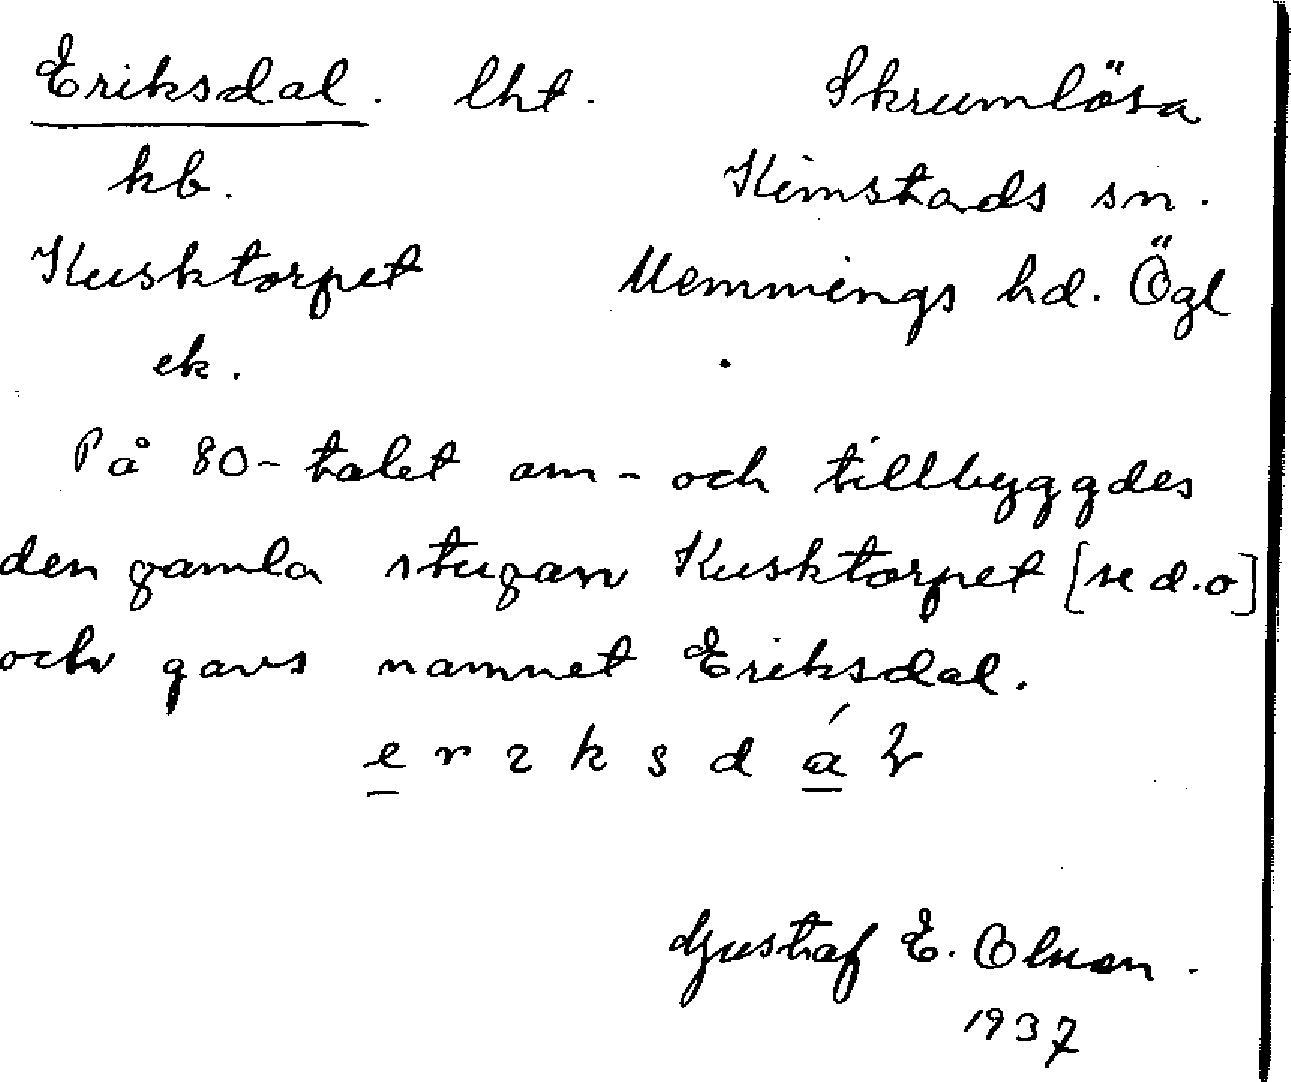 Eriksdal. lht. Skrumlösa
kb. Kimstads sn.
Kusktorpet Memmings hd. Ögl
ek.
På 80-talet om- och tillbyggdes
den gamla stugan Kusktorpet [se d.o]
och gavs namnet Eriksdal.
Gustaf E. Olsson.
1937